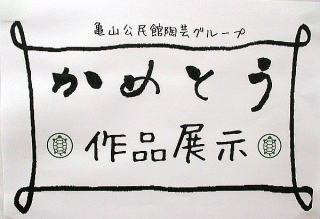 亀山公民館陶芸グループ
かめとう
作品展示